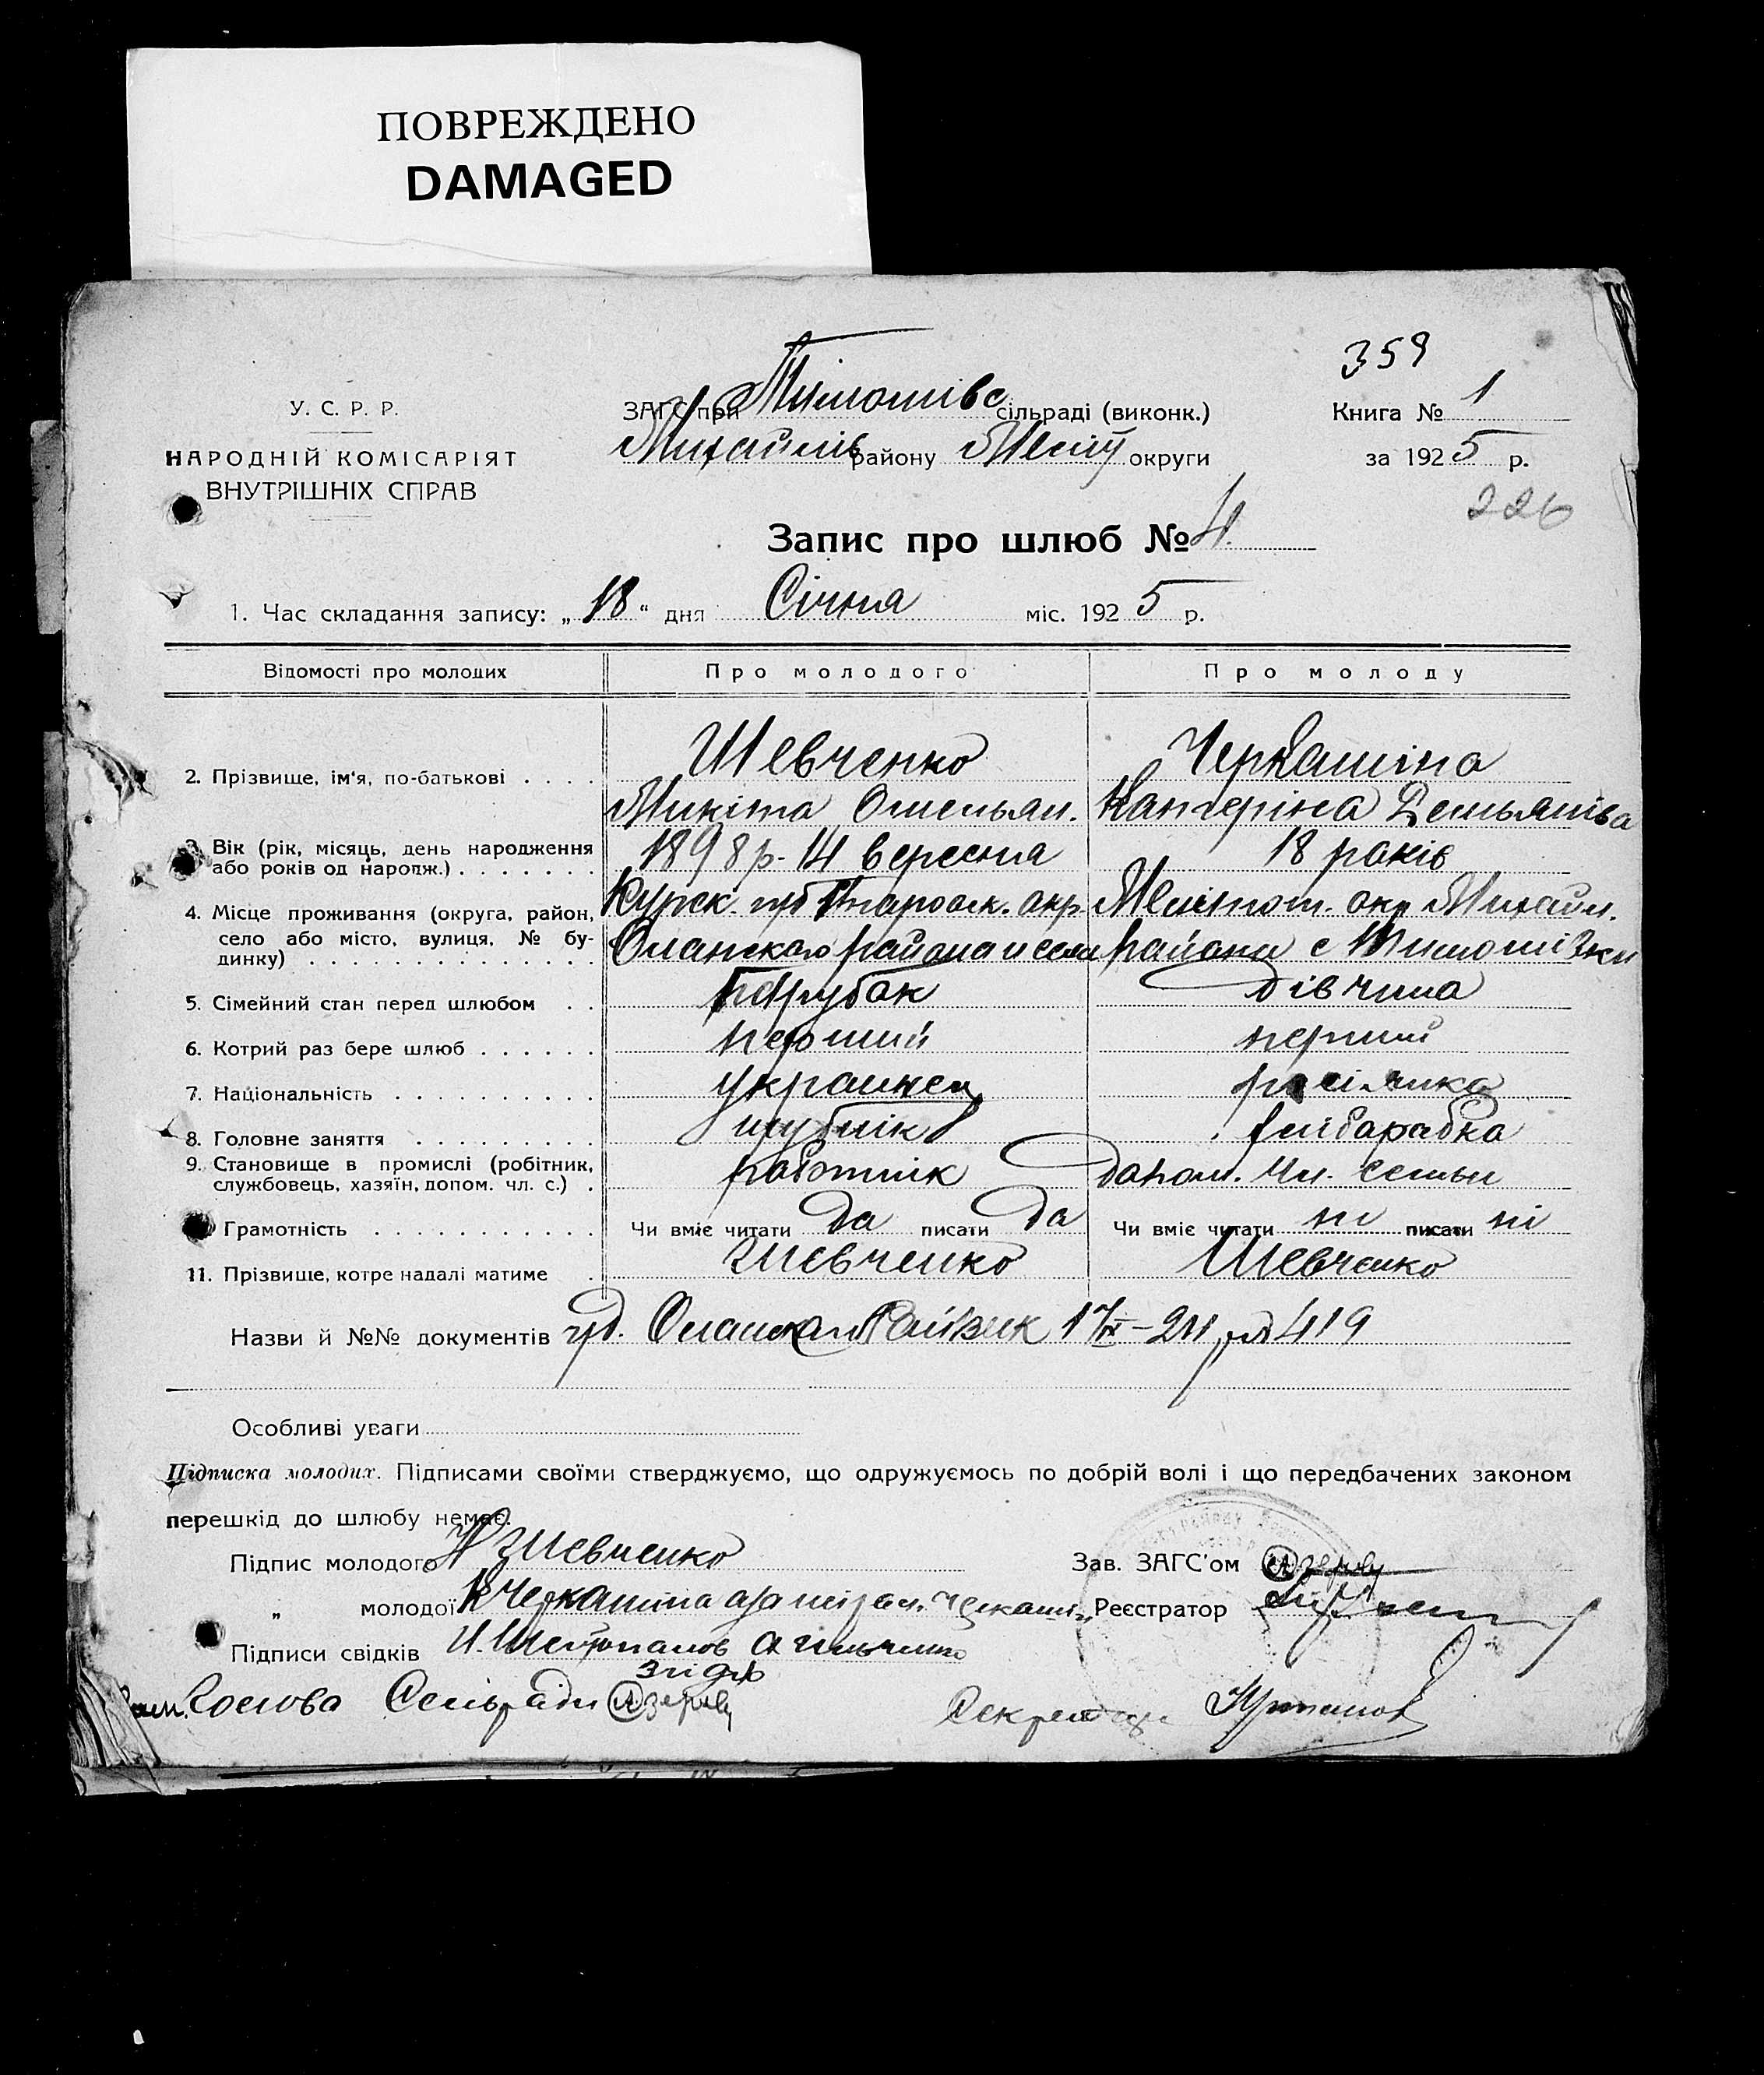 ПОВРЕЖДЕНО
DAMAGED
359
У. С. Р. Р.
НАРОДНІЙ КОМІСАРІЯТ
ВНУТРІШНІХ СПРАВ
ЗАГС при Тимошівс сільраді (виконк.)
Михайлів району Меліт округи
Книга № 1
за 1925 р.
226
Запис про шлюб № 4.
1. Час складання запису: „18“ дня Січня міс. 1925 р.
Відомості про молодих Про молодого Про молоду
2. Прізвище, ім'я, по-батькові . . . . Шевченко Черкашіна
Микіта Омельян. Катеріна Демьянівна
3. Вік (рік, місяць, день народження або років од народж.) . . . . . . . 1898 р. 14 вересня 18 років
4. Місце проживання (округа, район, село або місто, вулиця, № будинку) . . . . . . . . . . . . . .
Курск. губ окр. Мелітоп. окр Михайл.
района и села района с Тимошівки
5. Сімейний стан перед шлюбом . . Парубок дівчина
6. Котрий раз бере шлюб . . . . . . перший перший
7. Національність . . . . . . . . . . украинец росіянка
8. Головне заняття . . . . . . . . . хліборобка
9. Становище в промислі (робітник, службовець, хазяїн, допом. чл. с.) . работнік допом. чл. семьи
Грамотність . . . . . . . . . . . Чи вміє читати да писати да Чи вміє читати ні писати ні
11. Прізвище, котре надалі матиме . Шевченко Шевченко
Назви й №№ документів Райвик № 419
Особливі уваги
Підписка молодих. Підписами своїми стверджуємо, що одружуємось по добрій волі і що передбачених законом
перешкід до шлюбу немає.
Підпис молодого Н Шевченко
Зав. ЗАГС'ом
„ молодої К Черкашіна
Реєстратор
Підписи свідків
Голова Сільради
Секретар